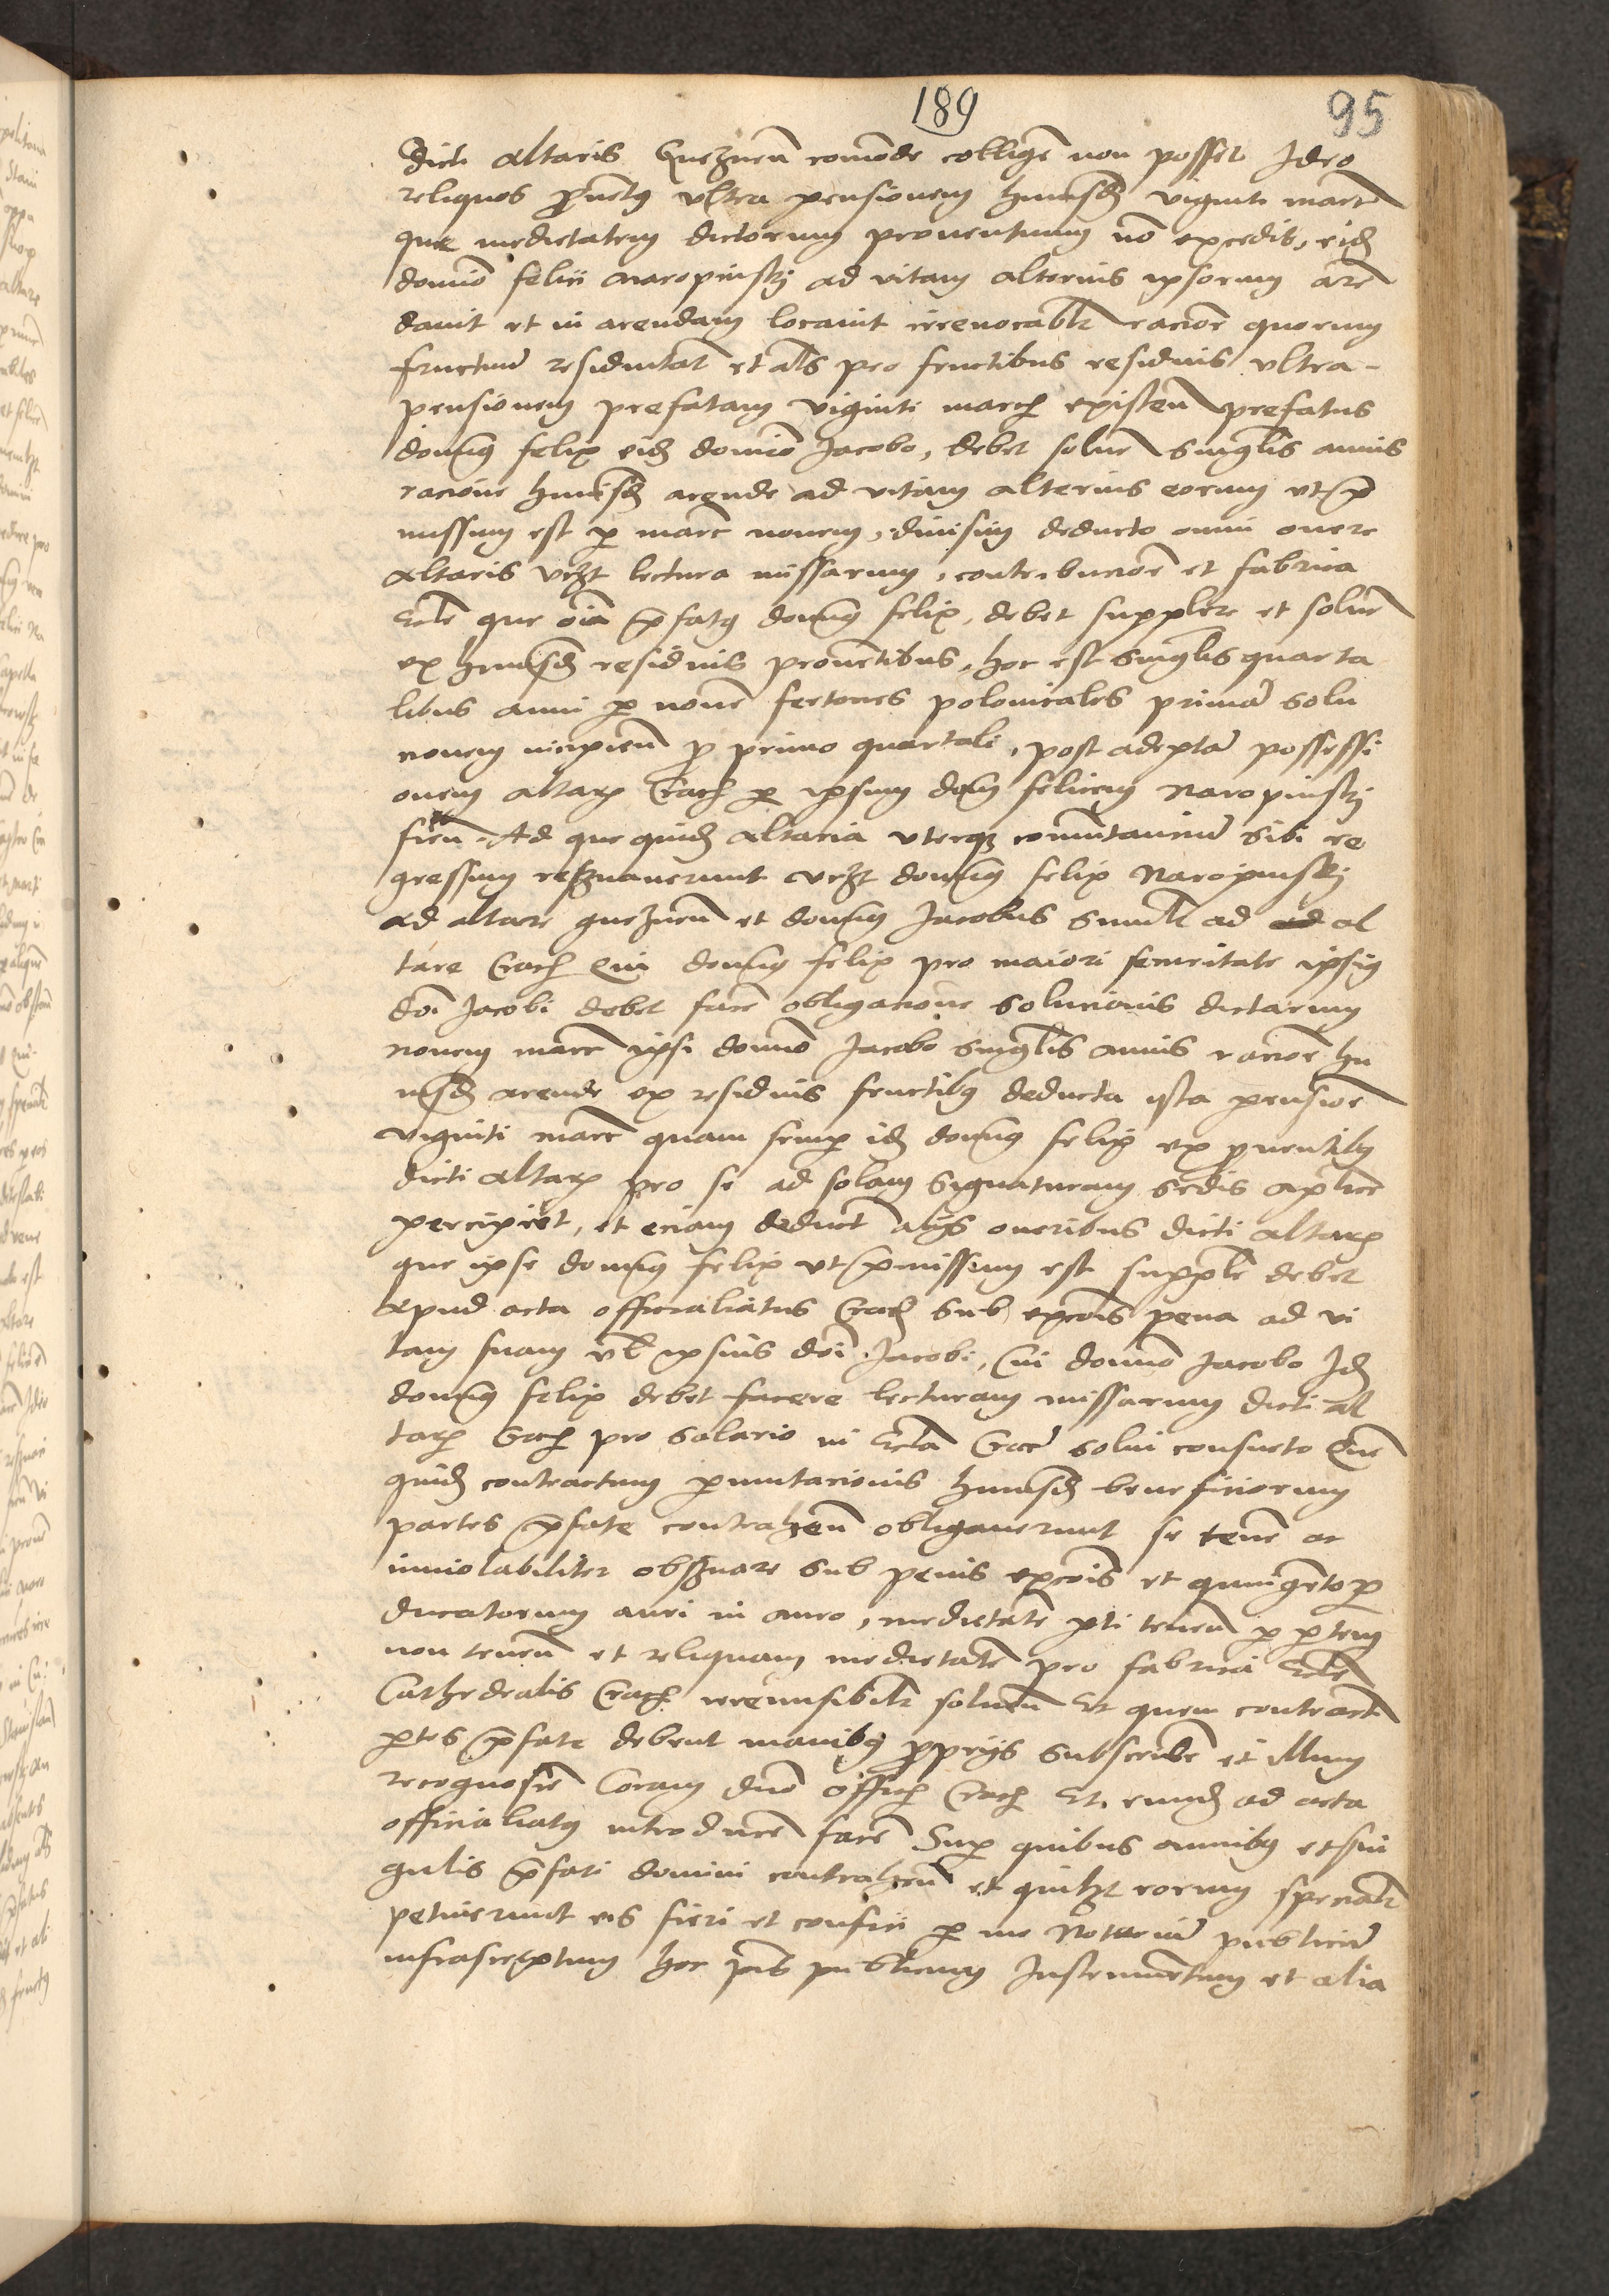 189
95
dicti altaris Gneznen comode colligere non posset Ideo
reliquos proventus ultra pensionem huiusmodi viginti marcarum
que medietatem dictorum proventuum non excedit, eidem
domino felici Naropinskj ad vitam alterius ipsorum aren
davit et in arendam locavit irrevocabiliter racione quorum
fructuum residuitatis et alias pro fructibus residuis ultra -
pensionem prefatam viginti marcarum existen prefatus
dominus felix eidem domino Jacobo, debet solvere singulis annis
racione huiusmodi arende ad vitam alterius eorum ut pre
missum est per marcas novem, divisim deducto omni onere
altaris videlicet lectura missarum, contribucione et fabrica
Ecclesie que omnia prefatus dominus felix, debet supplere et solvere
ex huiusmodi residuis proventibus, hoc est singulis quarta
libus anni per novem fertones polonicales primam solu
cionem incipiendo pro primo quartali, post adeptam possessi
onem altaris Cracoviensis per ipsum dominum felicem Naropinskj
fiendam. Ad que quidem altaria uterque comutantium sibi re
gressum reservaverunt videlicet dominus felix Naropinskj
ad altare gneznen et dominus Jacobus similiter ad ad al
tare Cracoviensis Qui dominus felix pro maiori securitate ipsius
domini Jacobi debet facere obligacionem solucionis dictarum
novem marcarum ipsi domino Jacobo singulis annis racione hu
iusmodi arende ex residuis fructibus deducta ista pensione
viginti marcarum quam semper idem dominus felix ex proventibus
dicti altaris pro se ad solam signaturam sedis apostolice
percipiet, et eciam deductis aliis oneribus dicti altaris
que ipse dominus felix ut premissum est supplere debet
apud acta officialatus Cracoviensis sub excommunicationis pena ad vi
tam suam vel ipsius domini Jacobi, Cui domino Jacobo Idem
dominus felix debet facere lecturam missarum dicti al
taris Cracoviensis pro salario in Ecclesia Cracoviensi solvi consueto Quem
quidem contractum permutacionis huiusmodi beneficiorum
partes prefate contrahentes obligaverunt se tenere ac
inviolabiliter observare sub penis excommunicationis et quingentorum
ducatorum auri in auro, medietatem parti tenenti per partem
non tenentem et reliquam medietatem pro fabrica Ecclesie
Cathedralis Cracoviensis irremisibiliter solvendum Et quem contractum
partes prefate debent manibus propriis subscribere et illum
recognoscere Coram domino officiali Cracoviensi Et eundem ad acta
officialatus introducere facere Super quibus omnibus et sin
gulis prefati domini contrahentes et quilibet eorum specialiter
petiverunt eis fieri et confici per me Notarium publicum
infrascriptum hoc presens publicum Instrumentum et alia